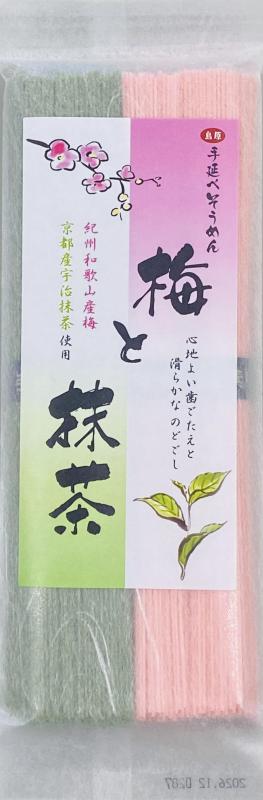 島原
手延べそうめん
梅
と
抹茶
紀州和歌山産梅
京都産宇治抹茶使用
心地よい歯ごたえと
滑らかなのどごし
2026.12.